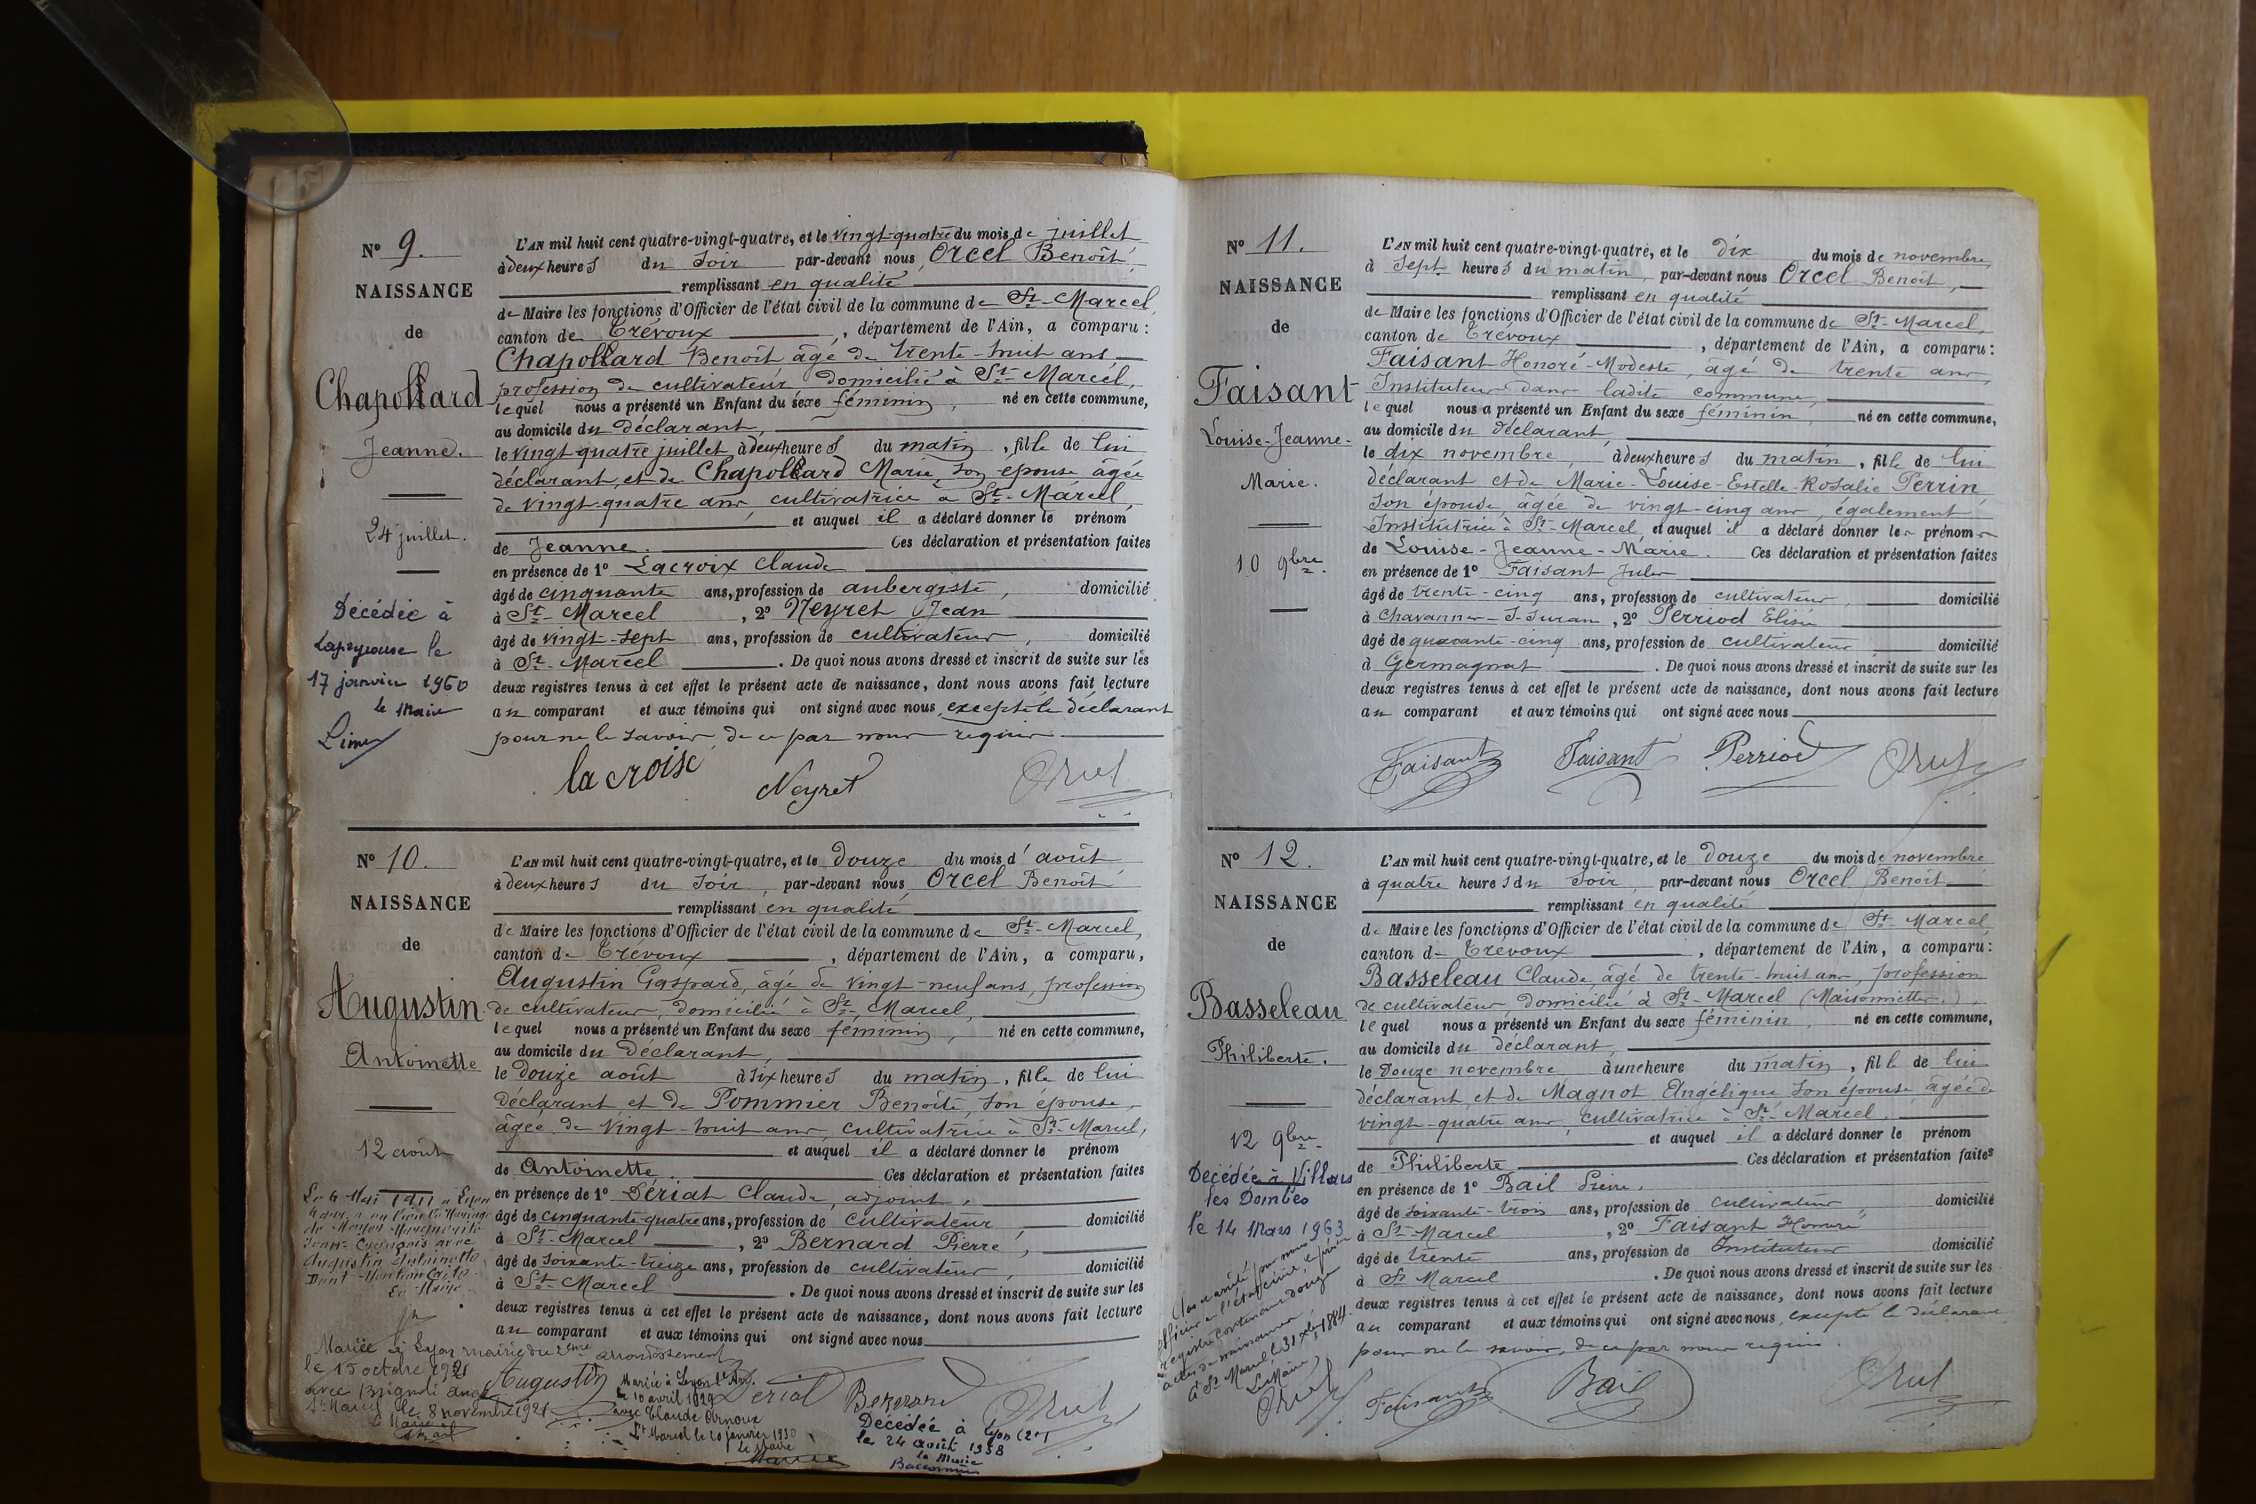 N° 9.
NAISSANCE
de
Chapollard
Jeanne.
24 juillet.
Décédée à
Lapeyrouse le
17 janvier 1960
le Maire
L'AN mil huit cent quatre-vingt-quatre, et le vingt-quatre du mois de juillet
à deux heures du soir par-devant nous Orcel Benoît,
remplissant en qualité
de Maire les fonctions d'Officier de l'état civil de la commune de St-Marcel,
canton de Trévoux, département de l'Ain, a comparu :
Chapollard Benoît âgé de trente-huit ans
profession de cultivateur domicilié à St-Marcel,
lequel nous a présenté un Enfant du sexe féminin, né en cette commune,
au domicile du déclarant,
le vingt-quatre juillet à deux heures du matin, fille de lui
déclarant, et de Chapollard Marie son épouse âgée
de vingt-quatre ans, cultivatrice à St-Marcel,
et auquel il a déclaré donner le prénom
de Jeanne. Ces déclaration et présentation faites
en présence de 1° Lacroix Claude
âgé de cinquante ans, profession de aubergiste, domicilié
à St-Marcel, 2° Neyret Jean
âgé de vingt-sept ans, profession de cultivateur, domicilié
à St-Marcel. De quoi nous avons dressé et inscrit de suite sur les
deux registres tenus à cet effet le présent acte de naissance, dont nous avons fait lecture
au comparant et aux témoins qui ont signé avec nous, excepté le déclarant
pour ne le savoir, de ce par nous requis
la croisc Neyret Orcel
N° 10.
NAISSANCE
de
Augustin
Antoinette
12 août
L'AN mil huit cent quatre-vingt-quatre, et le douze du mois d'août
à deux heures du soir, par-devant nous Orcel Benoît
remplissant en qualité
de Maire les fonctions d'Officier de l'état civil de la commune de St-Marcel,
canton de Trévoux, département de l'Ain, a comparu,
Augustin Gaspard, âgé de vingt-neuf ans, profession
de cultivateur, domicilié à St-Marcel,
lequel nous a présenté un Enfant du sexe féminin, né en cette commune,
au domicile du déclarant,
le douze août à six heures du matin, fille de lui
déclarant et de Pommier Benoîte, son épouse,
âgée de vingt-huit ans, cultivatrice à St-Marcel,
et auquel il a déclaré donner le prénom
de Antoinette. Ces déclaration et présentation faites
en présence de 1° Dériat Claude, adjoint,
âgé de cinquante-quatre ans, profession de cultivateur, domicilié
à St-Marcel, 2° Bernard Pierre,
âgé de soixante-treize ans, profession de cultivateur, domicilié
à St-Marcel. De quoi nous avons dressé et inscrit de suite sur les
deux registres tenus à cet effet le présent acte de naissance, dont nous avons fait lecture
au comparant et aux témoins qui ont signé avec nous
Mariée à Lyon mairie du 2eme arrondissement
le 15 octobre 1921
avec
St Marcel le 8 novembre 1921
le Maire
Augustin
Mariée à Lyon
le 10 avril 1929
avec Claude Arnoux
St Marcel le 10 janvier 1930
le Maire
Dériat
Orcel
Décédée à Lyon (2e)
le 24 août 1958
le Maire
N° 11.
NAISSANCE
de
Faisant
Louise-Jeanne-
Marie.
10 9bre.
L'AN mil huit cent quatre-vingt-quatre, et le dix du mois de novembre,
à sept heures du matin, par-devant nous Orcel Benoît,
remplissant en qualité
de Maire les fonctions d'Officier de l'état civil de la commune de St-Marcel,
canton de Trévoux, département de l'Ain, a comparu :
Faisant Honoré-Modeste, âgé de trente ans,
Instituteur dans ladite commune,
lequel nous a présenté un Enfant du sexe féminin, né en cette commune,
au domicile du déclarant,
le dix novembre, à deux heures du matin, fille de lui
déclarant et de Marie-Louise-Estelle-Rosalie Perrin,
son épouse, âgée de vingt-cinq ans, également
Institutrice à St-Marcel, et auquel il a déclaré donner les prénoms
de Louise-Jeanne-Marie. Ces déclaration et présentation faites
en présence de 1° Faisant Jules
âgé de trente-cinq ans, profession de cultivateur, domicilié
à Chavannes-s-Suran, 2° Perriod Elisée
âgé de quarante-cinq ans, profession de cultivateur domicilié
à Germagnat. De quoi nous avons dressé et inscrit de suite sur les
deux registres tenus à cet effet le présent acte de naissance, dont nous avons fait lecture
au comparant et aux témoins qui ont signé avec nous
Faisant Faisant Perriod Orcel
N° 12.
NAISSANCE
de
Basseleau
Philiberte.
12 9bre.
Décédée à Villars
les Dombes
le 14 Mars 1963
L'AN mil huit cent quatre-vingt-quatre, et le douze du mois de novembre
à quatre heures du soir, par-devant nous Orcel Benoît
remplissant en qualité
de Maire les fonctions d'Officier de l'état civil de la commune de St-Marcel,
canton de Trévoux, département de l'Ain, a comparu :
Basseleau Claude, âgé de trente-huit ans, profession
de cultivateur, domicilié à St-Marcel (Maisonnettes),
lequel nous a présenté un Enfant du sexe féminin, né en cette commune,
au domicile du déclarant,
le Douze novembre à une heure du matin, fille de lui
déclarant, et de Magnot Angélique son épouse âgée de
vingt-quatre ans, cultivatrice à St-Marcel.
et auquel il a déclaré donner le prénom
de Philiberte Ces déclaration et présentation faites
en présence de 1° Bail Pierre.
âgé de soixante-trois ans, profession de cultivateur, domicilié
à St-Marcel, 2° Faisant Honoré
âgé de trente ans, profession de Instituteur domicilié
à St Marcel. De quoi nous avons dressé et inscrit de suite sur les
deux registres tenus à cet effet le présent acte de naissance, dont nous avons fait lecture
au comparant et aux témoins qui ont signé avec nous, excepté le déclarant
pour ne le savoir, de ce par nous requis.
Clos et arrêté par nous
officier de l'état civil, le présent
registre contenant douze
actes de naissances
à St Marcel le 31 xbre 1884.
Le Maire,
Orcel
Faisant Bail Orcel